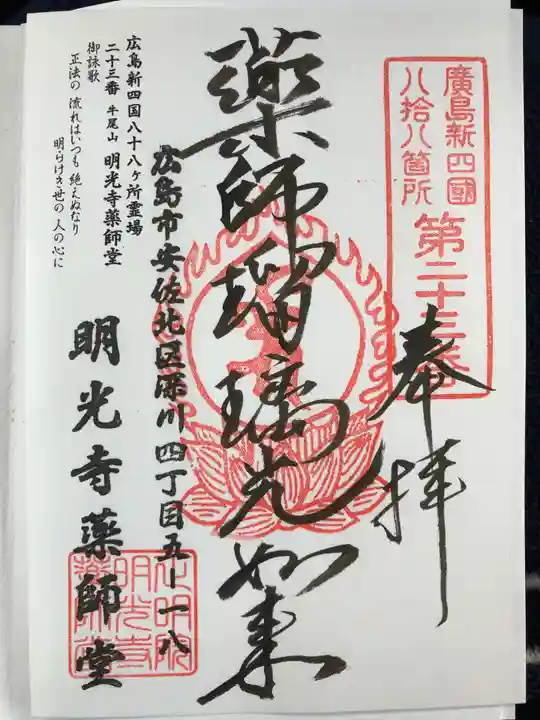 廣島新四國
八拾八箇所
第二十三番
奉拝
薬師瑠璃光如来
広島新四国八十八ヶ所霊場
二十三番 牛尾山 明光寺薬師堂
御詠歌
正法の 流れはいつも 絶えぬなり
明らけき世の 人の心に
広島市安佐北区深川四丁目五-一八
明光寺薬師堂
明光寺
薬師堂